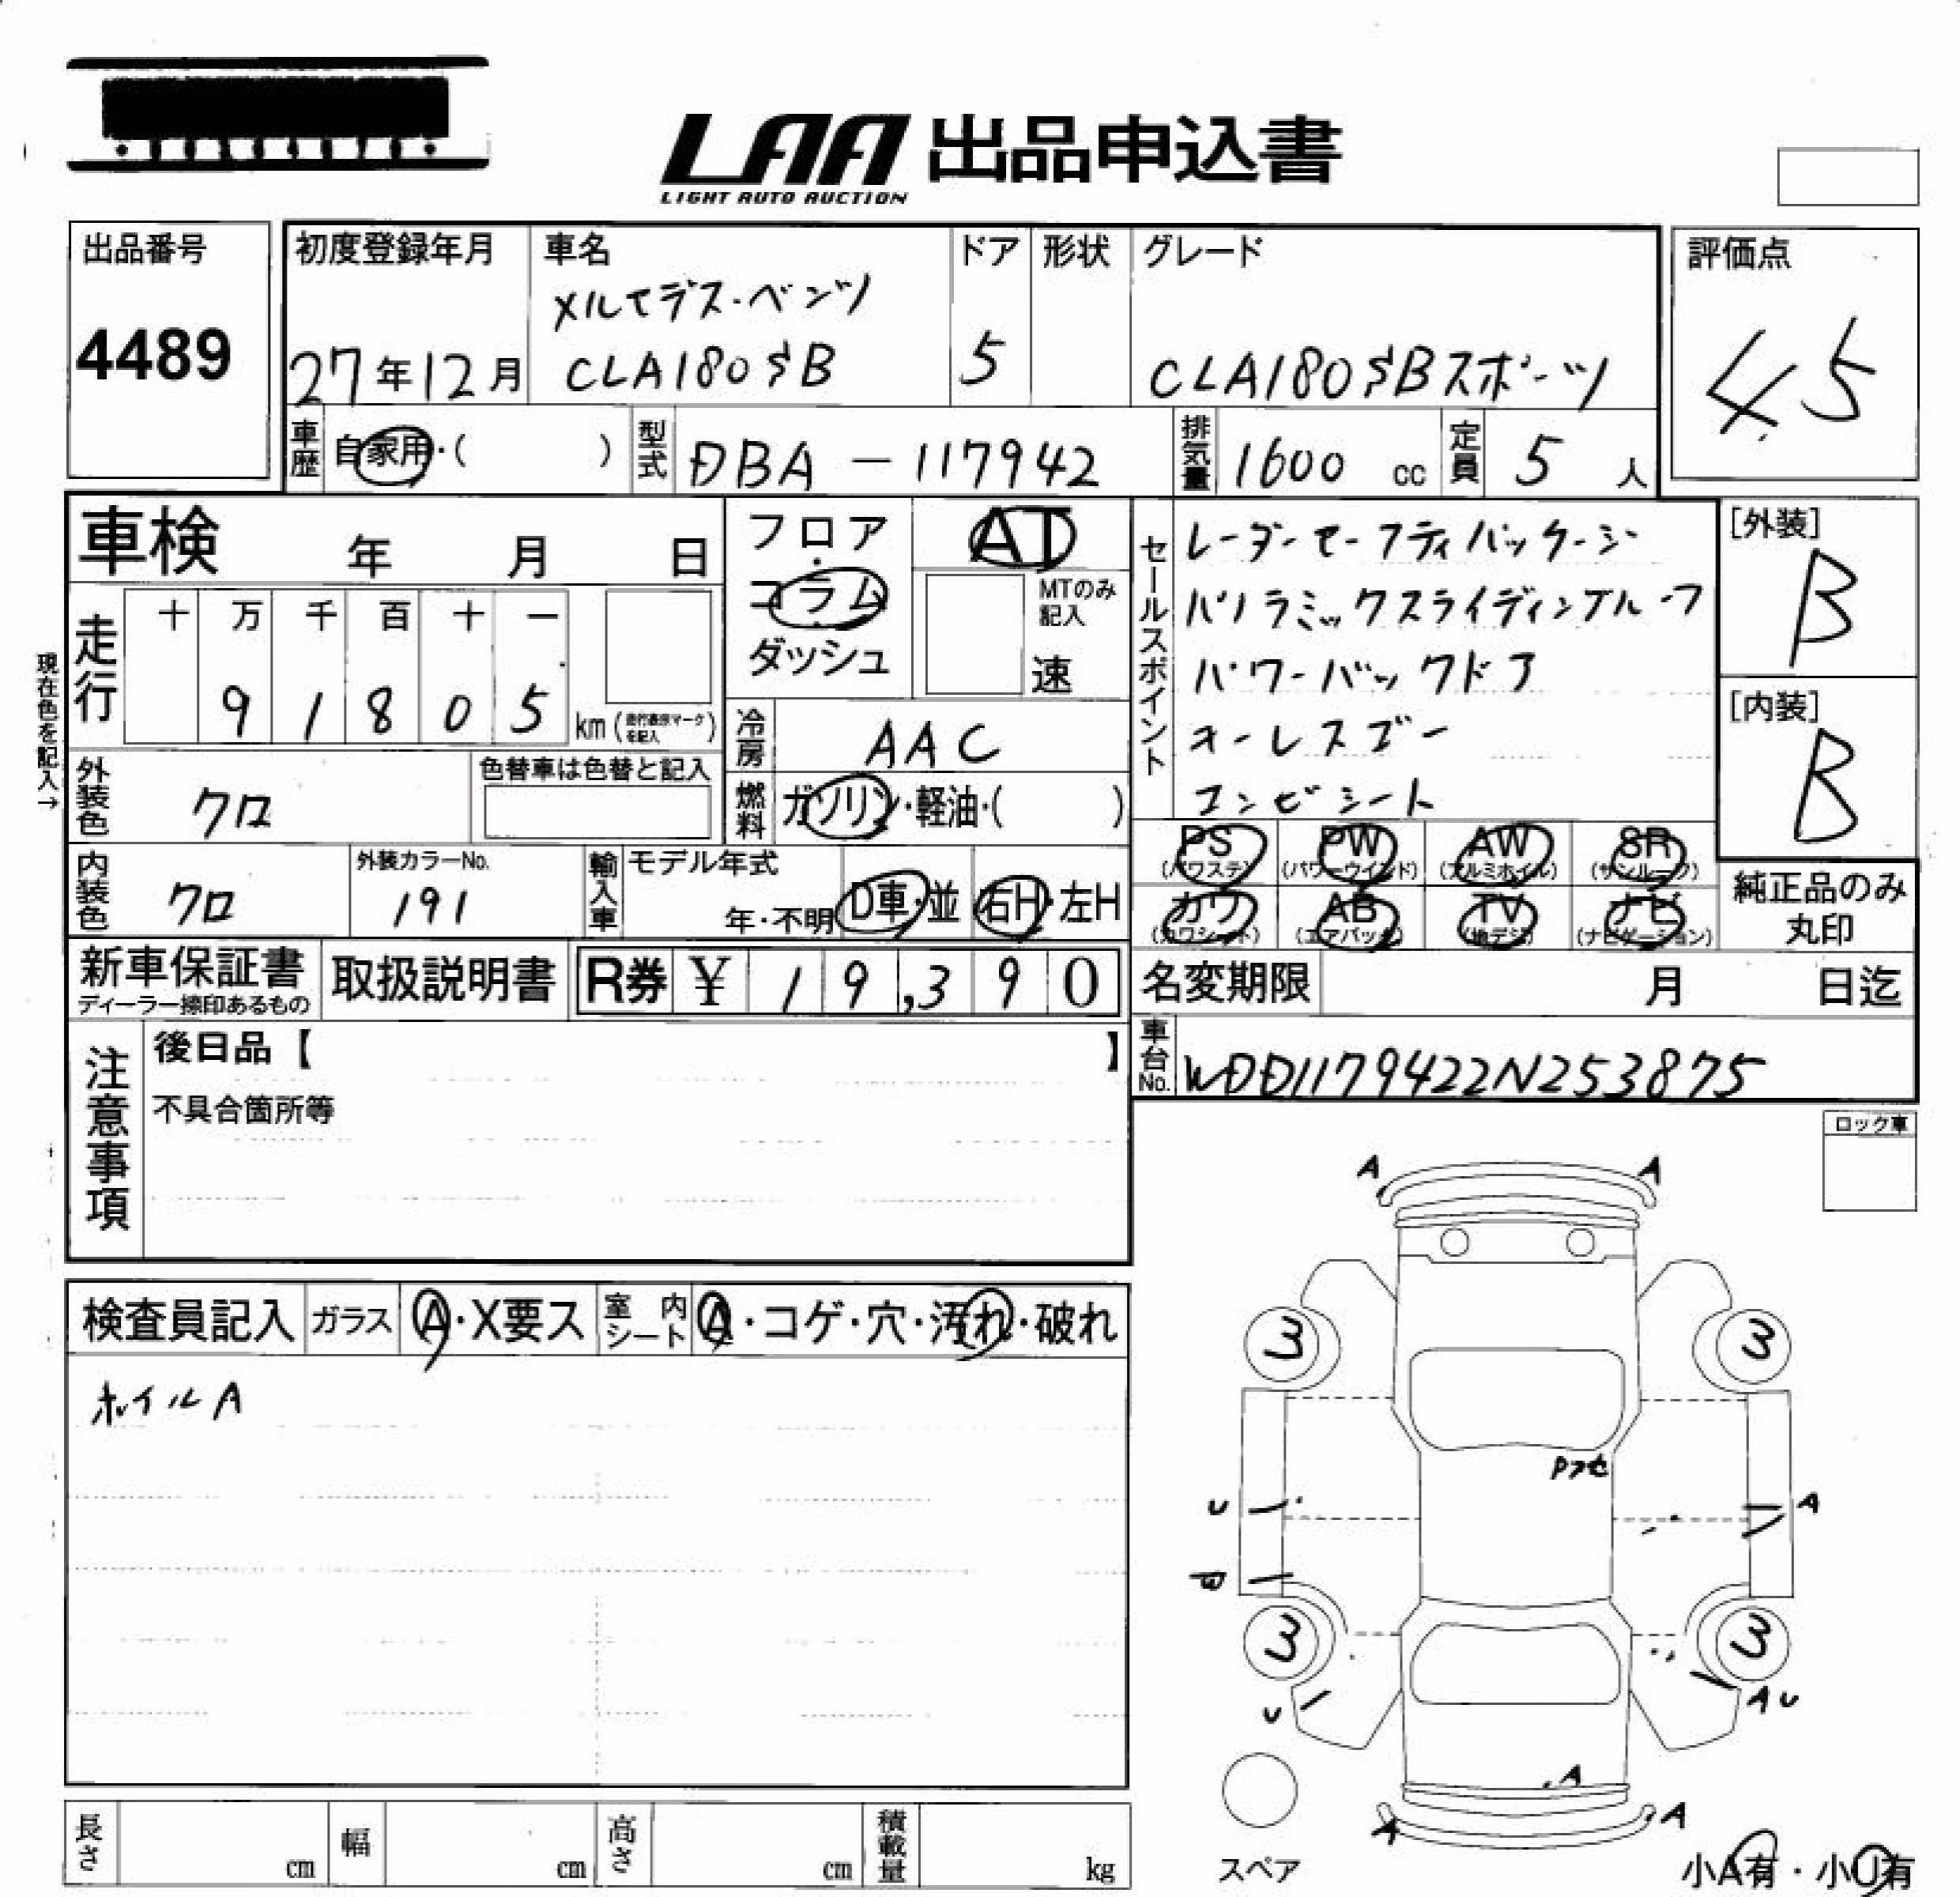 LAA 出品申込書
LIGHT AUTO AUCTION
出品番号
4489
初度登録年月
27年12月
車名
メルセデス・ベンツ
CLA180SB
ドア
5
形状
グレード
CLA180SBスポーツ
評価点
4.5
車歴 自家用・( )
型式 DBA-117942
排気量 1600 cc
定員 5 人
車検 年 月 日
フロア・コラム・ダッシュ
AT
MTのみ記入
速
セールスポイント
レーダーセーフティパッケージ
パノラミックスライディングルーフ
パワーバックドア
キーレスゴー
コンビシート
[外装]
B
[内装]
B
現在色を記入→
走行
十 万 千 百 十 一
9 1 8 0 5
km (走行表示マークを記入)
冷房 AAC
外装色 クロ
色替車は色替と記入
燃料 ガソリン・軽油・( )
PS (パワステ)
PW (パワーウインド)
AW (アルミホイル)
SR (サンルーフ)
カワ (カワシート)
AB (エアバック)
TV (地デジ)
ナビ (ナビゲーション)
純正品のみ丸印
内装色 クロ
外装カラーNo.
191
輸入車 モデル年式
年・不明
D車・並
右H・左H
新車保証書
ディーラー捺印あるもの
取扱説明書
R券 ¥ 19,390
名変期限 月 日迄
注意事項
後日品【 】
不具合箇所等
車台No. WDD1179422N253875
ロック車
検査員記入
ガラス A・X要ス
室内シート A・コゲ・穴・汚れ・破れ
ホイルA
A A
3 3
U A
3 3
U AU
A
A A
スペア
小A有・小U有
長さ cm
幅 cm
高さ cm
積載量 kg